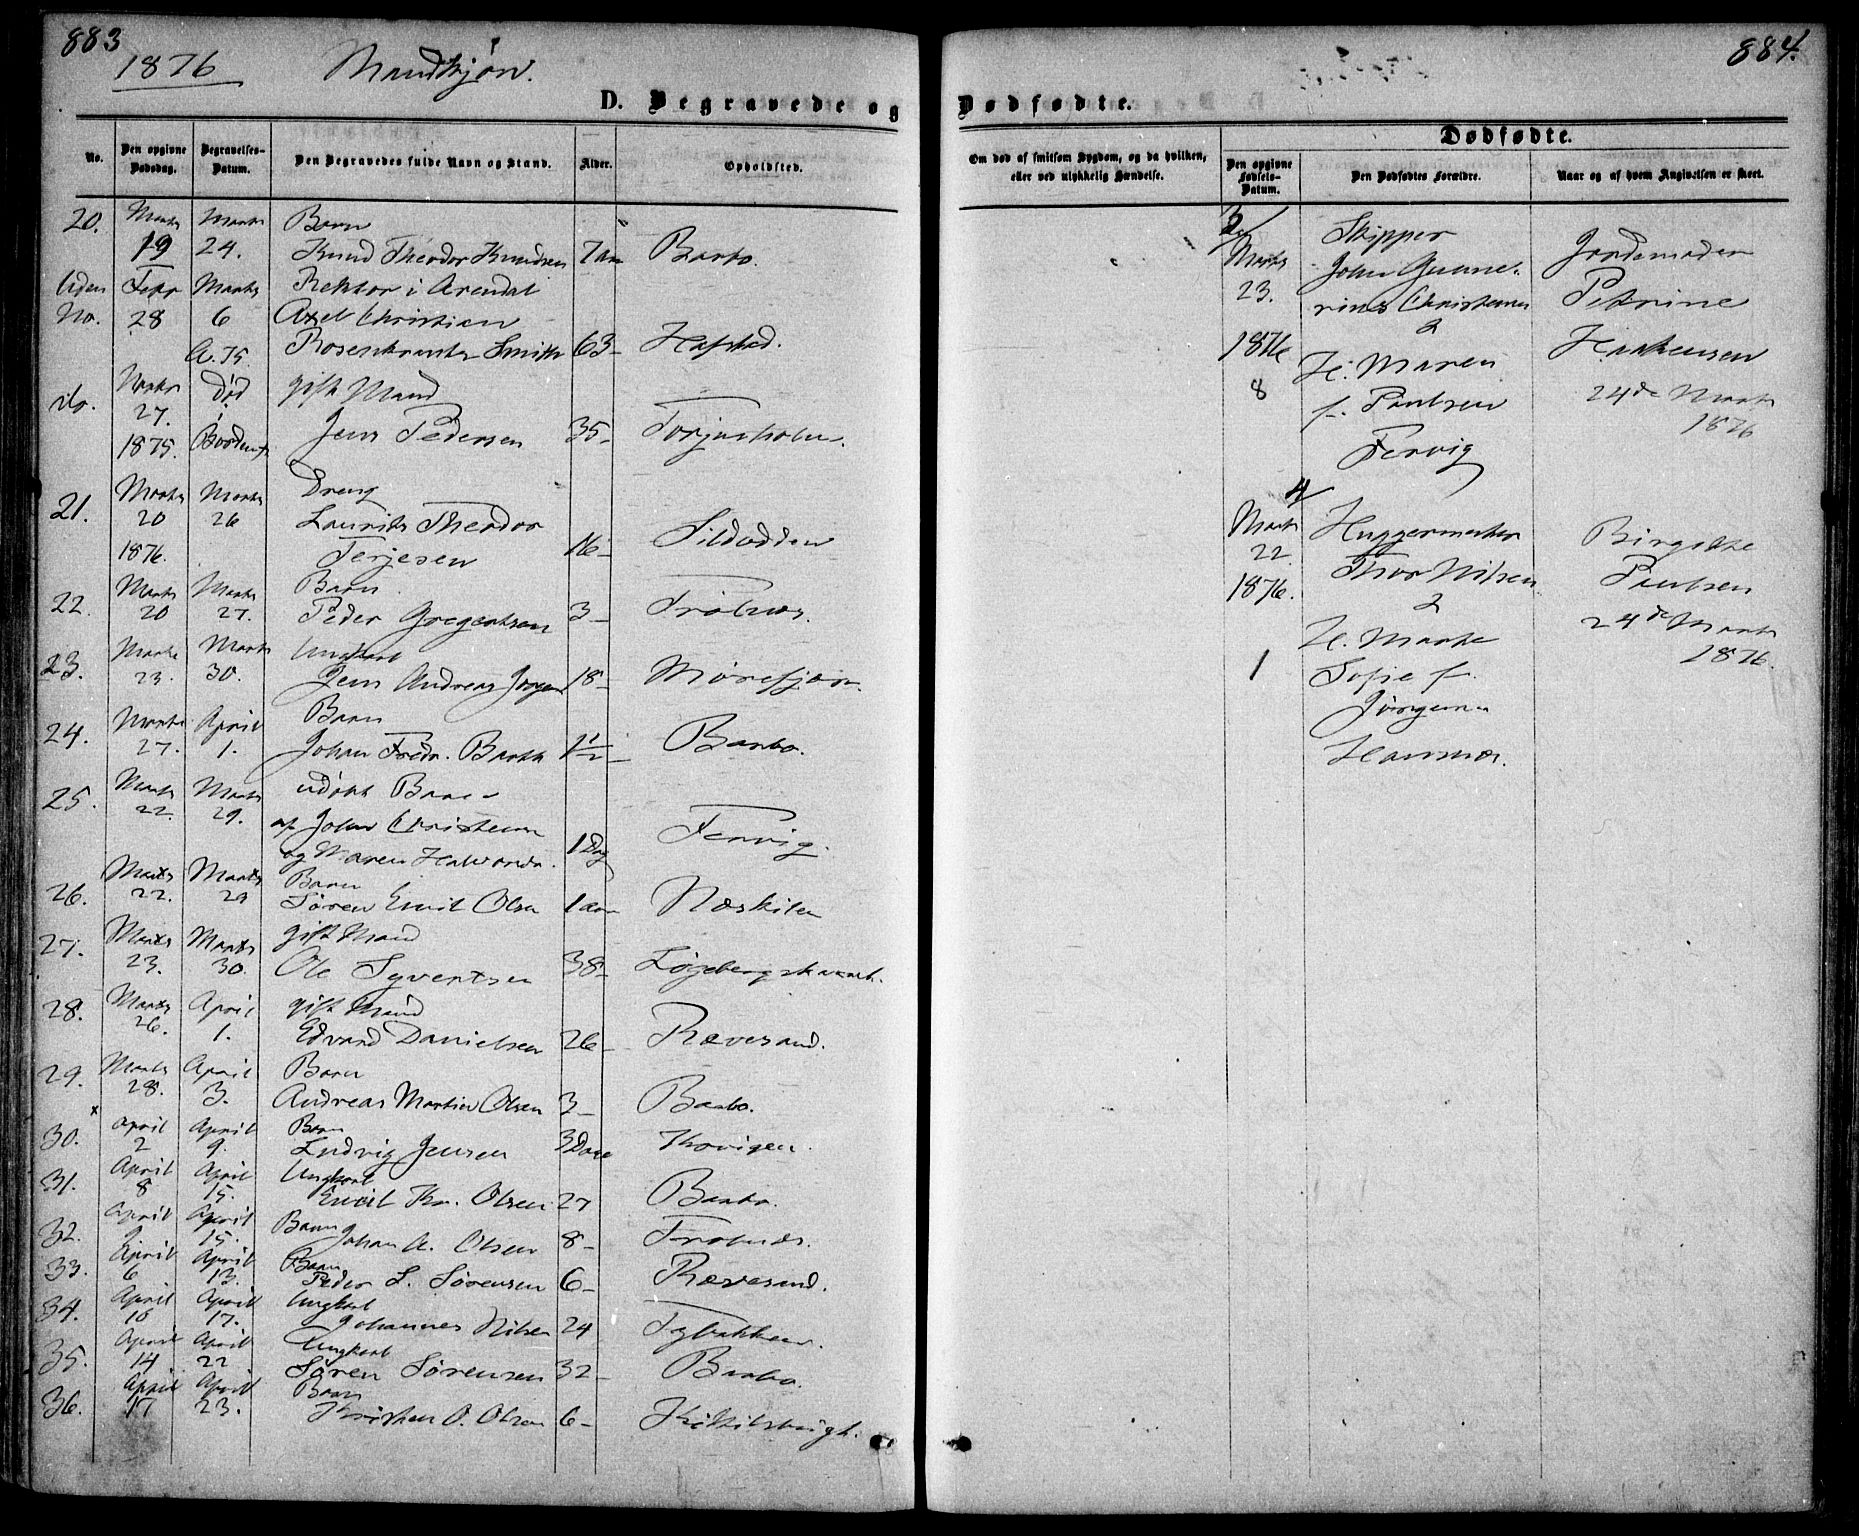 883
1876 Mandkjøn.
D. Begravede og
No.
Den opgivne Dødsdag.
Begravelses-Datum.
Den Begravedes fulde Navn og Stand.
Alder.
Opholdsted.
20. Marts 19 Marts 24. Barn
Knud Theodor Knudsen 7 aar Barbo.
Uden No. Febr 28 Marts 6 Rektor i Arendal
Axel Christian
A. 75. Rosenkrantz Smith 63- Hafsted.
do. Marts 27. 1875. Død gift Mand
Jens Pedersen 35- Torjusholm.
21. Marts 20 1876. Marts 26 Dreng
Laurits Theodor
Terjesen 16- Sildodden
22. Marts 20 Marts 27. Barn
Peder Gregertsen 3- Frolnæs.
23. Marts 23. Marts 30. Ungkarl
Jens Andreas 18- Mørefjær.
24. Marts 27. April 1. Barn
Johan Fredr. Barth 1½- Barbo.
25. Marts 22. Marts 29. udøbt Barn
af John Christensen
og Maren 1 Dag Fervig.
26. Marts 22. Marts 29 Barn
Søren Emil Olsen 1 aar Næskilen
27. Marts 23. Marts 30. gift Mand
Ole Syvertsen 38-
28. Marts 26. April 1. gift Mand
Edvard Danielsen 26- Rævesand.
29. Marts 28. April 3. Barn
Andreas Martin Olsen 3- Barbo.
x
30. April 2 April 9. Barn
Ludvig Jensen 3 Dage
31. April 8 April 15. Ungkarl
Emil Kr. Olsen 27 Barbo.
32. April 9 April 15. Barn
Johan A. Olsen 8- Frolnæs.
33. April 6 April 13. Barn
Peder L. Sørensen 6- Rævesand.
34. April 10 April 17. Ungkarl
Johannes Nilsen 24 Tybakken.
35. April 14 April 22 Ungkarl
Søren Sørensen 32- Barbo.
36. April 17 April 23. Barn
Kristen O. Olsen 6-
884.
Dødfødte.
Om død af smitsom Sygdom, og da hvilken,
eller ved ulykkelig Hændelse.
Dødfødte.
Den opgivne Fødsels-Datum.
Den Dødfødtes Forældre.
Naar og af hvem Angivelsen er skeet.
3/
Marts
23.
1876
8
Skipper
John Gunne-
rius Christensen
&
H. Maren
f. Paulsen
Fervig
Jordemoder
Petrine
Haakensen
24de Marts
1876
4/
Marts
22.
1876.
1
Huggermester
Thor Nilsen
&
H. Marte
Sofie f.
Jørgensen
Birgitte
Paulsen
24de Marts
1876.